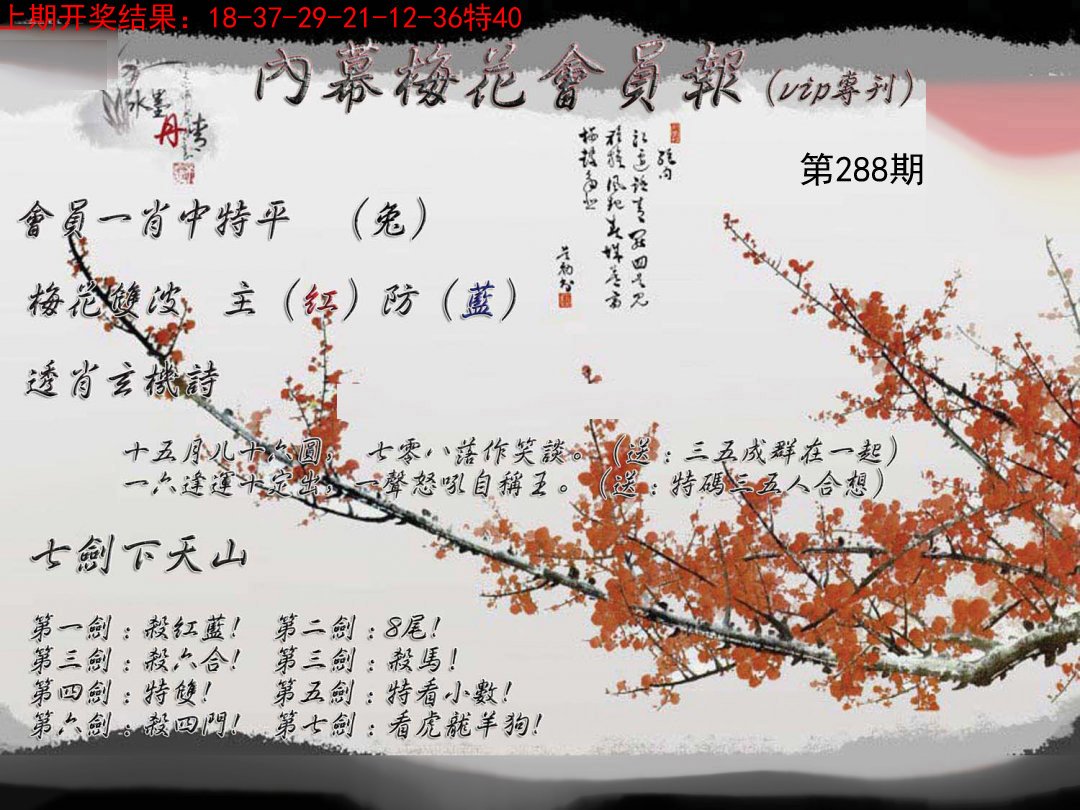 上期开奖结果：18-37-29-21-12-36特40
內幕梅花會員報（vip專刊）
水墨
丹青
第288期
會員一肖中特平　（兔）
梅花雙波　主（紅）防（藍）
透肖玄機詩
十五月儿十六圓， 七零八落作笑談。（送：三五成群在一起）
一六逢運十定出，一聲怒吼自稱王。（送：特碼三五人合想）
七劍下天山
第一劍：殺紅藍！　第二劍：8尾！
第三劍：殺六合！　第三劍：殺馬！
第四劍：特雙！　第五劍：特看小數！
第六劍：殺四門！　第七劍：看虎龍羊狗！